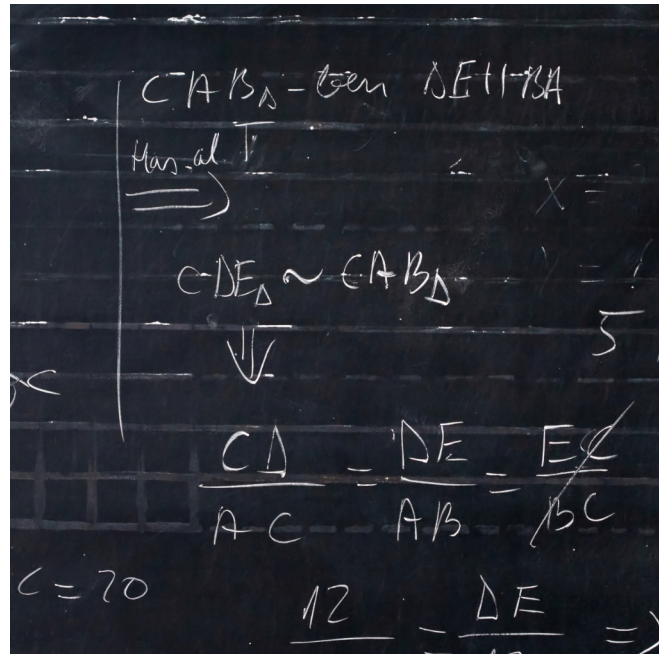 CAB△-ben DE||BA
Has. al. T
⟹
X =
CDE△ ~ CAB△
= ?
⇓
5
CD/AC = DE/AB = EC/BC
C = 20
12 = DE ⟹